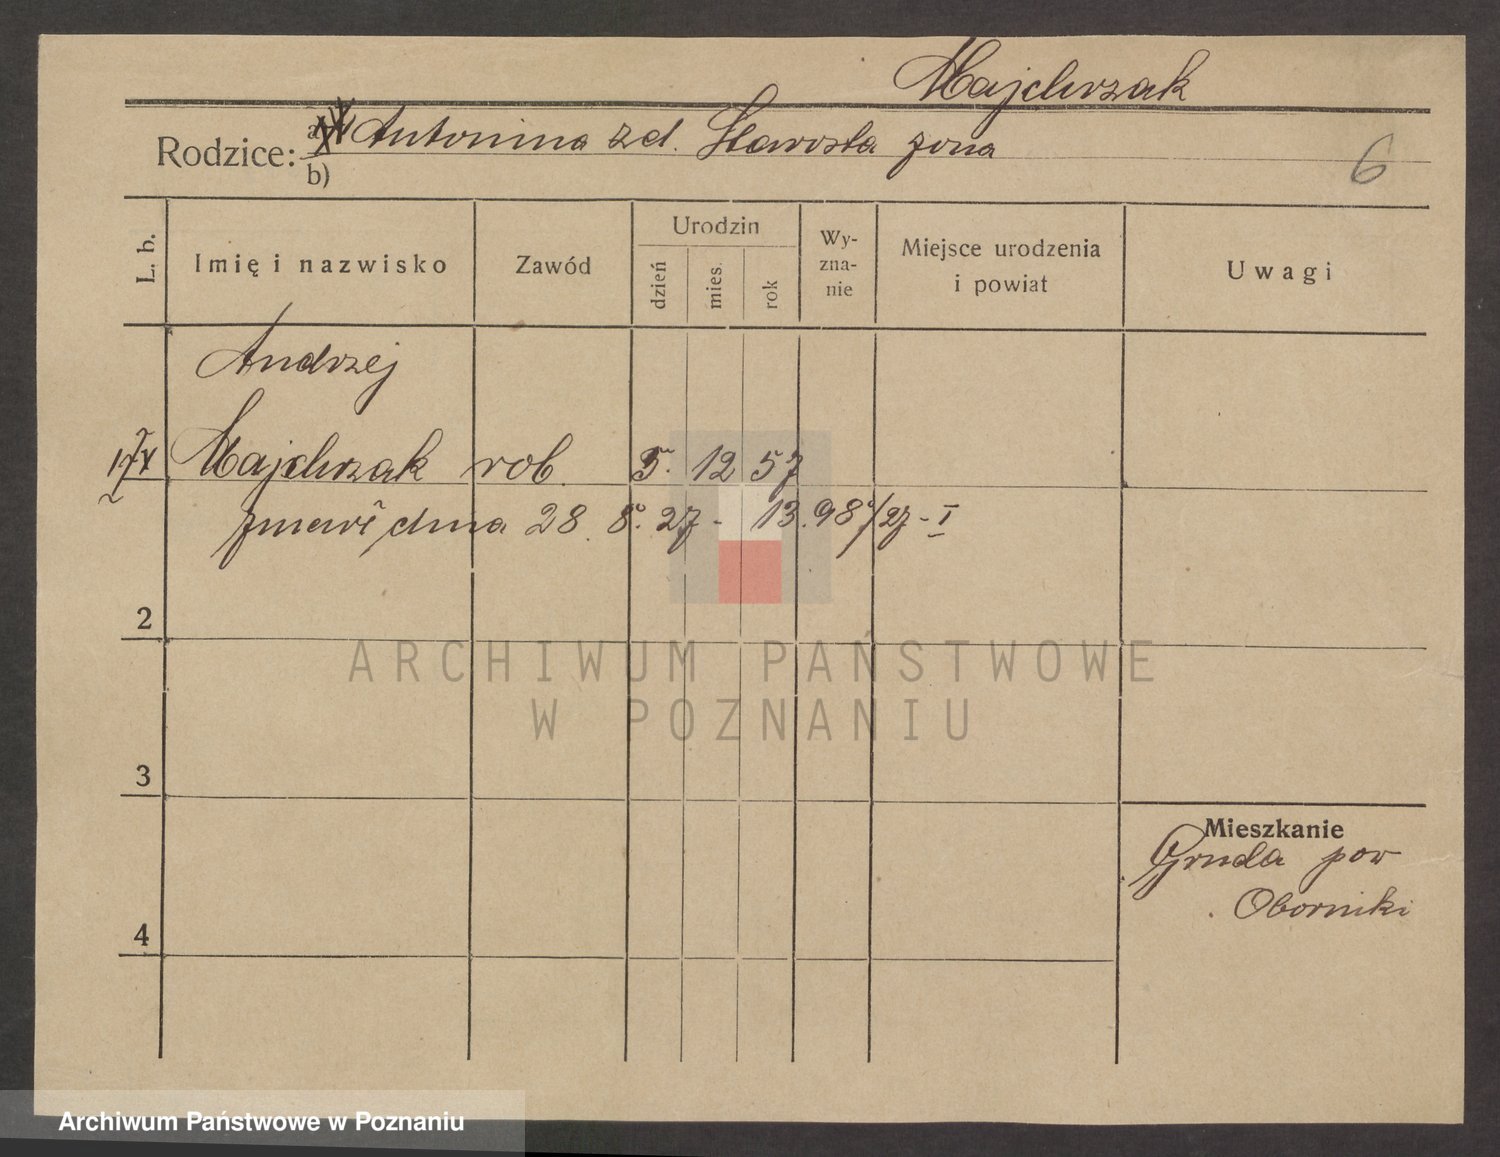 Majchrzak
Rodzice: a) Antonina zd. Starosta żona
b)
6
L. b.
Imię i nazwisko
Zawód
Urodzin
dzień
mies.
rok
Wy-
zna-
nie
Miejsce urodzenia
i powiat
Uwagi
Andrzej
Majchrzak rob. 5. 12 57
dnia 28. 8. 27 - 13.98/27 - I
2
ARCHIWUM PAŃSTWOWE
W POZNANIU
3
Mieszkanie
Gruda pow
Oborniki
4
Archiwum Państwowe w Poznaniu